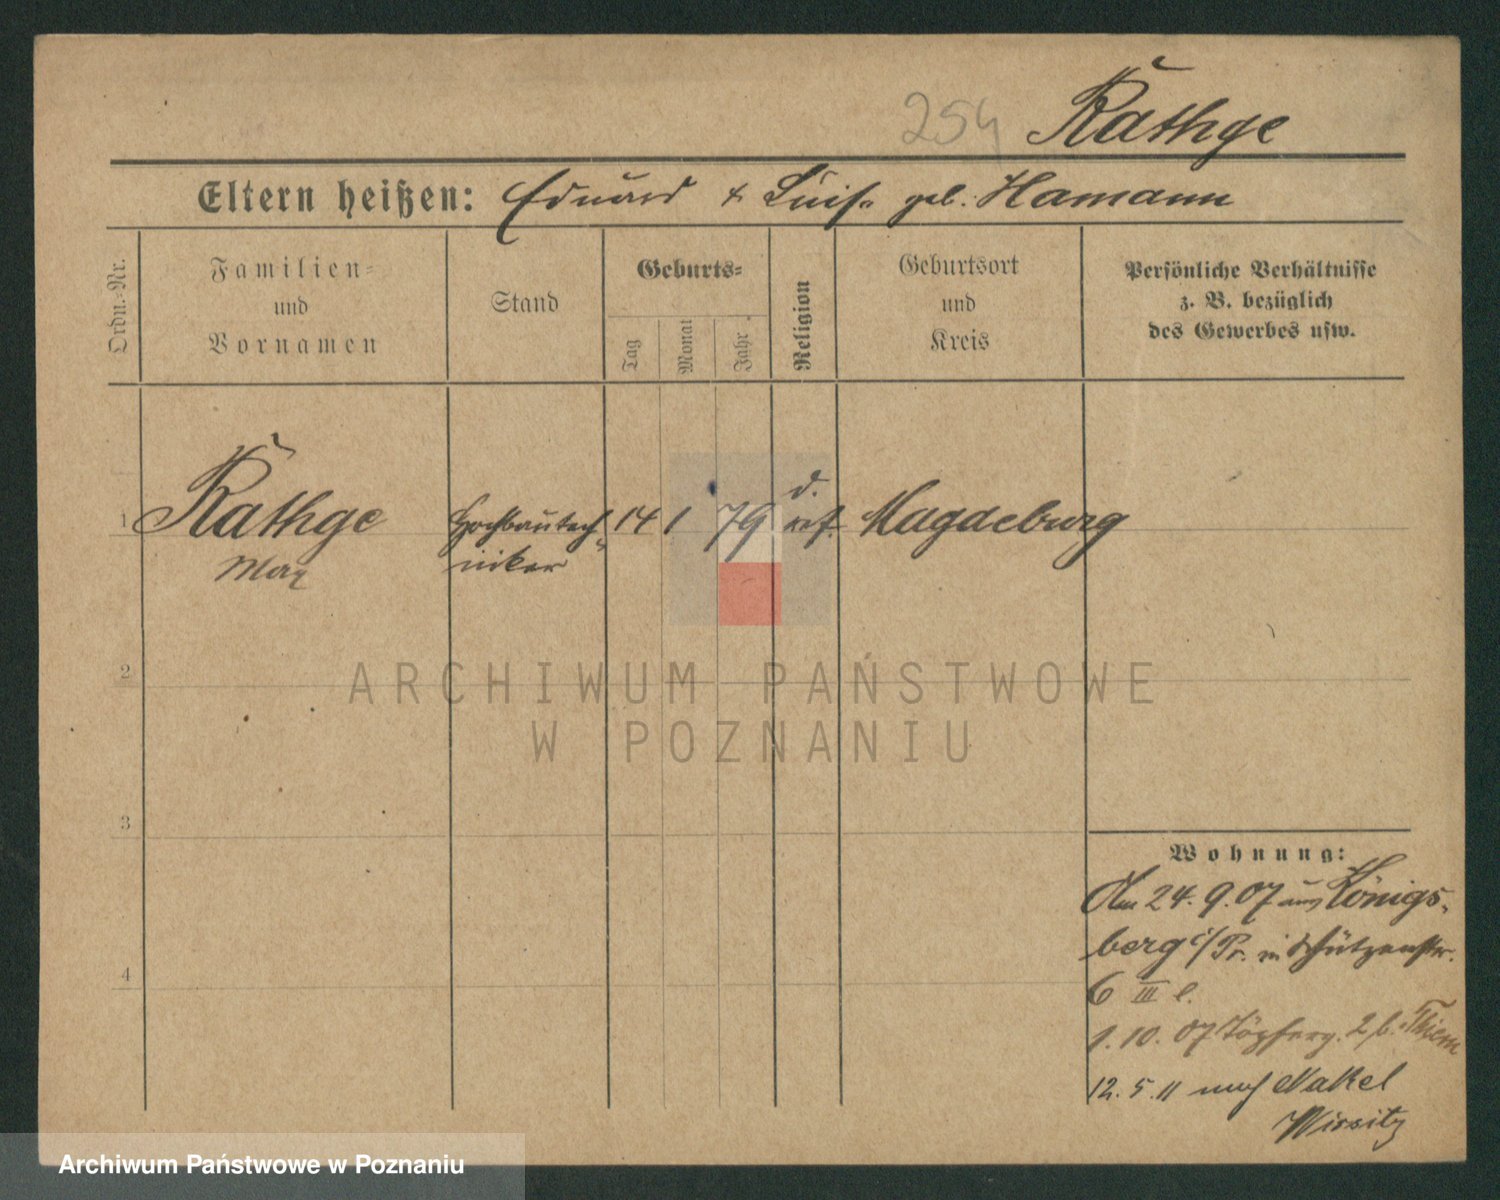 254 Rathge
Eltern heißen: Eduard & Luise geb. Hamann
Ordn.-Nr.
Familien-
und
Vornamen
Stand
Geburts-
Tag
Monat
Jahr
Religion
Geburtsort
und
Kreis
Persönliche Verhältnisse
z. B. bezüglich
des Gewerbes usw.
1 Rathge Hochbautech- 14 1 79 d. ref. Magdeburg
Max niker
2
3
4
ARCHIWUM PAŃSTWOWE
W POZNANIU
Wohnung:
Am 24. 9. 07 aus Königs-
berg i/Pr. in Schützenstr.
6 III l.
1. 10. 07 Töpferg. 2, b. Thiem
12. 5. 11 nach Nakel
Wissitz
Archiwum Państwowe w Poznaniu